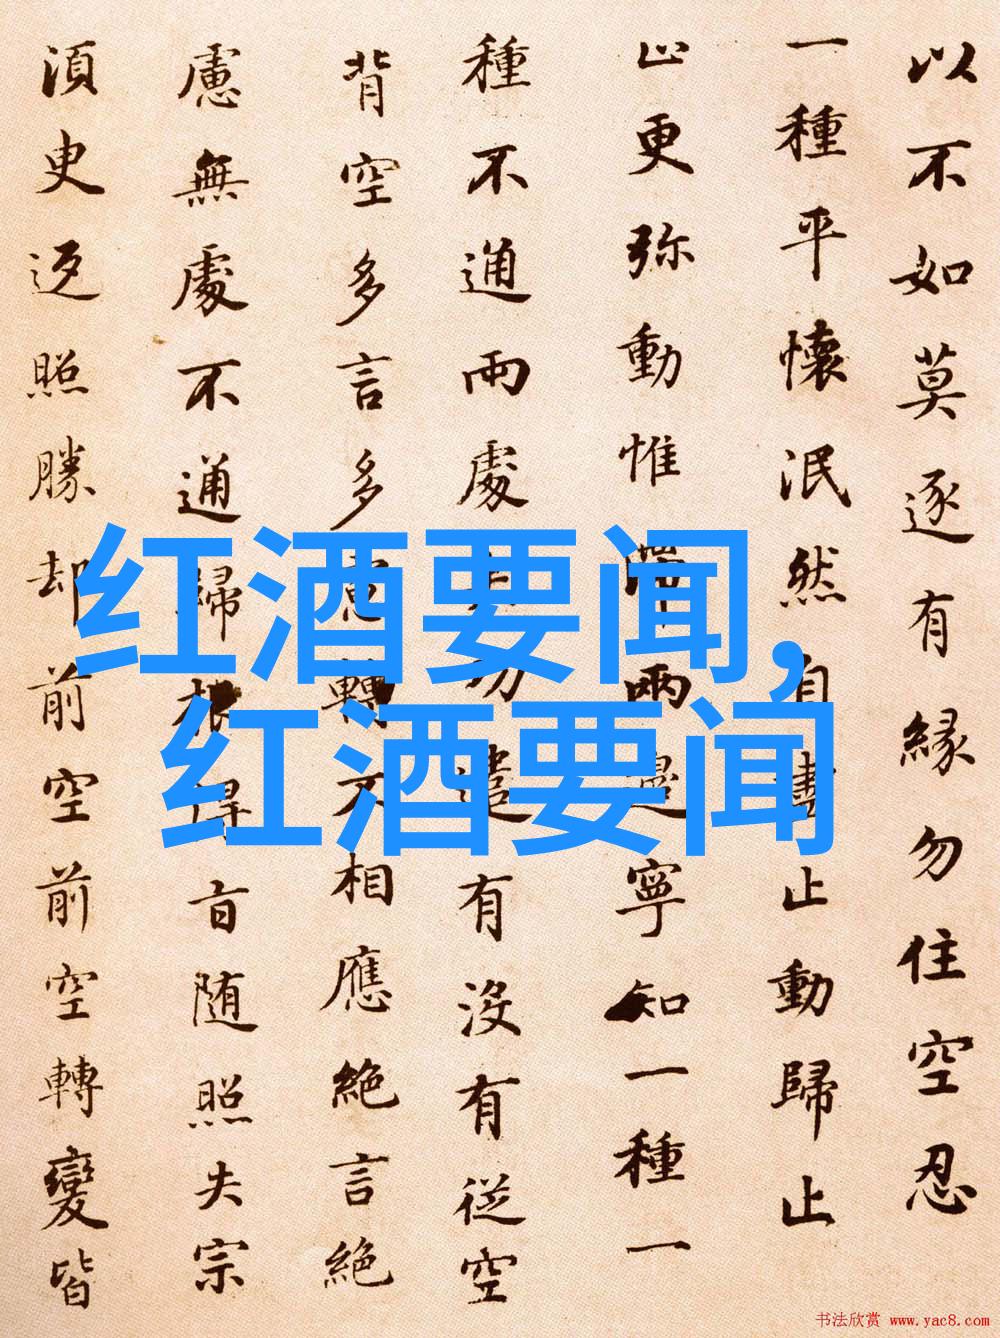 以不如莫逐有緣勿住空忍
一種平懷泯然自盡止動歸止
止更弥動惟滯兩邊寧知一種一
種不通兩處失功遣有沒有從空
背空多言多慮轉不相應絶言絶
慮無處不通歸根得旨随照失宗
須臾返照勝却前空前空轉變皆
红酒要闻,
红酒要闻
书法欣赏 www.yac8.com